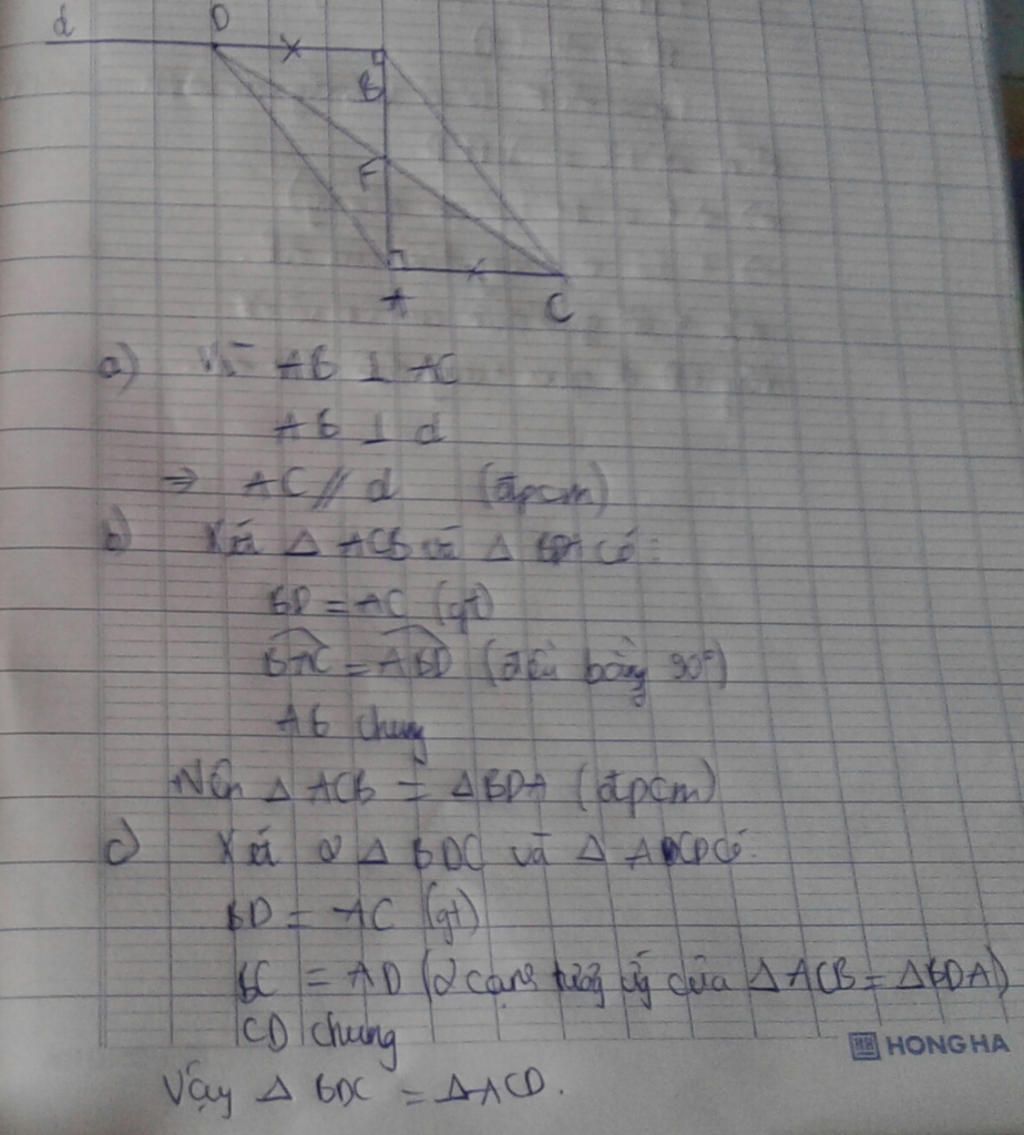 d D
B
F
A C
a) Vì AB ⊥ AC
AB ⊥ d
⇒ AC // d (đpcm)
b) Xét Δ ACB và Δ BDA có:
BD = AC (gt)
BAC = ABD (đều bằng 90°)
AB chung
Nên Δ ACB = Δ BDA (đpcm)
c) Xét 2 Δ BDC và Δ ACD có:
BD = AC (gt)
BC = AD (2 cạnh tương ứng của Δ ACB = Δ BDA)
CD chung
Vậy Δ BDC = Δ ACD.
HONG HA